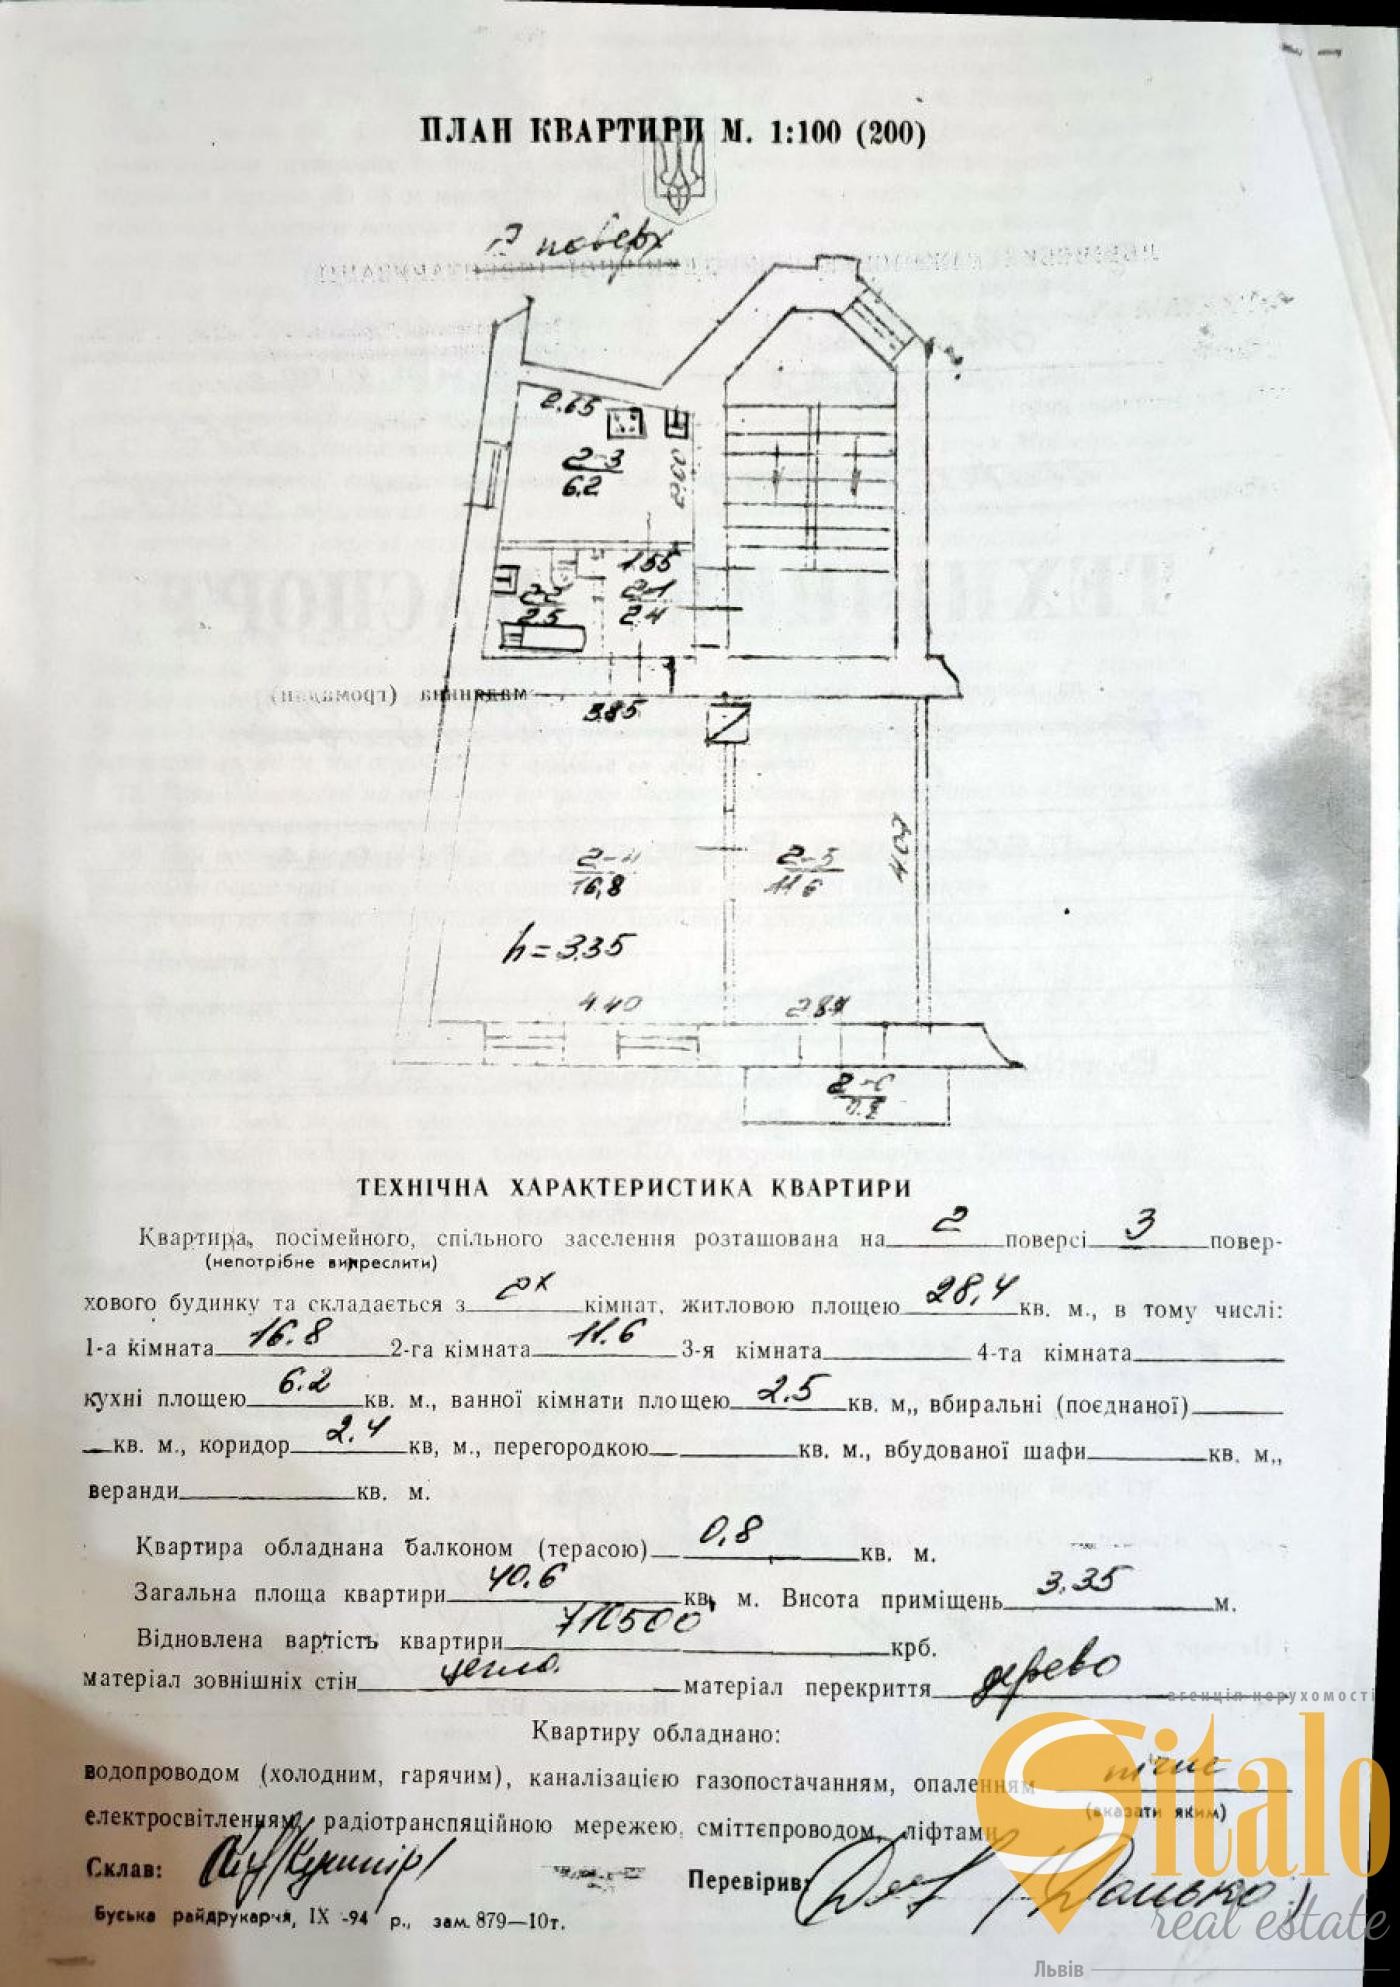 ПЛАН КВАРТИРИ М. 1:100 (200)
поверх
2.65
2-3
6.2
1.55
2-2
2.5
2-1
2.4
3.85
2-4
16,8
2-5
11.6
h = 3.35
4.40
2-6
ТЕХНІЧНА ХАРАКТЕРИСТИКА КВАРТИРИ
Квартира, посімейного, спільного заселення розташована на 2 поверсі 3 повер-
(непотрібне викреслити)
хового будинку та складається з 2х кімнат, житловою площею 28,4 кв. м., в тому числі:
1-а кімната 16.8 2-га кімната 11.6 3-я кімната 4-та кімната
кухні площею 6.2 кв. м., ванної кімнати площею 2.5 кв. м,, вбиральні (поєднаної)
кв. м., коридор 2.4 кв, м., перегородкою кв. м., вбудованої шафи кв. м,,
веранди кв. м.
Квартира обладнана балконом (терасою) 0,8 кв. м.
Загальна площа квартири 40.6 кв. м. Висота приміщень 3.35 м.
Відновлена вартість квартири крб.
матеріал зовнішніх стін цегла. матеріал перекриття дерево
агенція нерухомості
Квартиру обладнано:
водопроводом (холодним, гарячим), каналізацією газопостачанням, опаленням пічне
(вказати яким)
електросвітленням, радіотранспяційною мережею, сміттєпроводом, ліфтами
Склав: Перевірив:
Буська райдрукарчя, ІХ -94 р., зам. 879—10т.
Sitalo
real estate
Львів